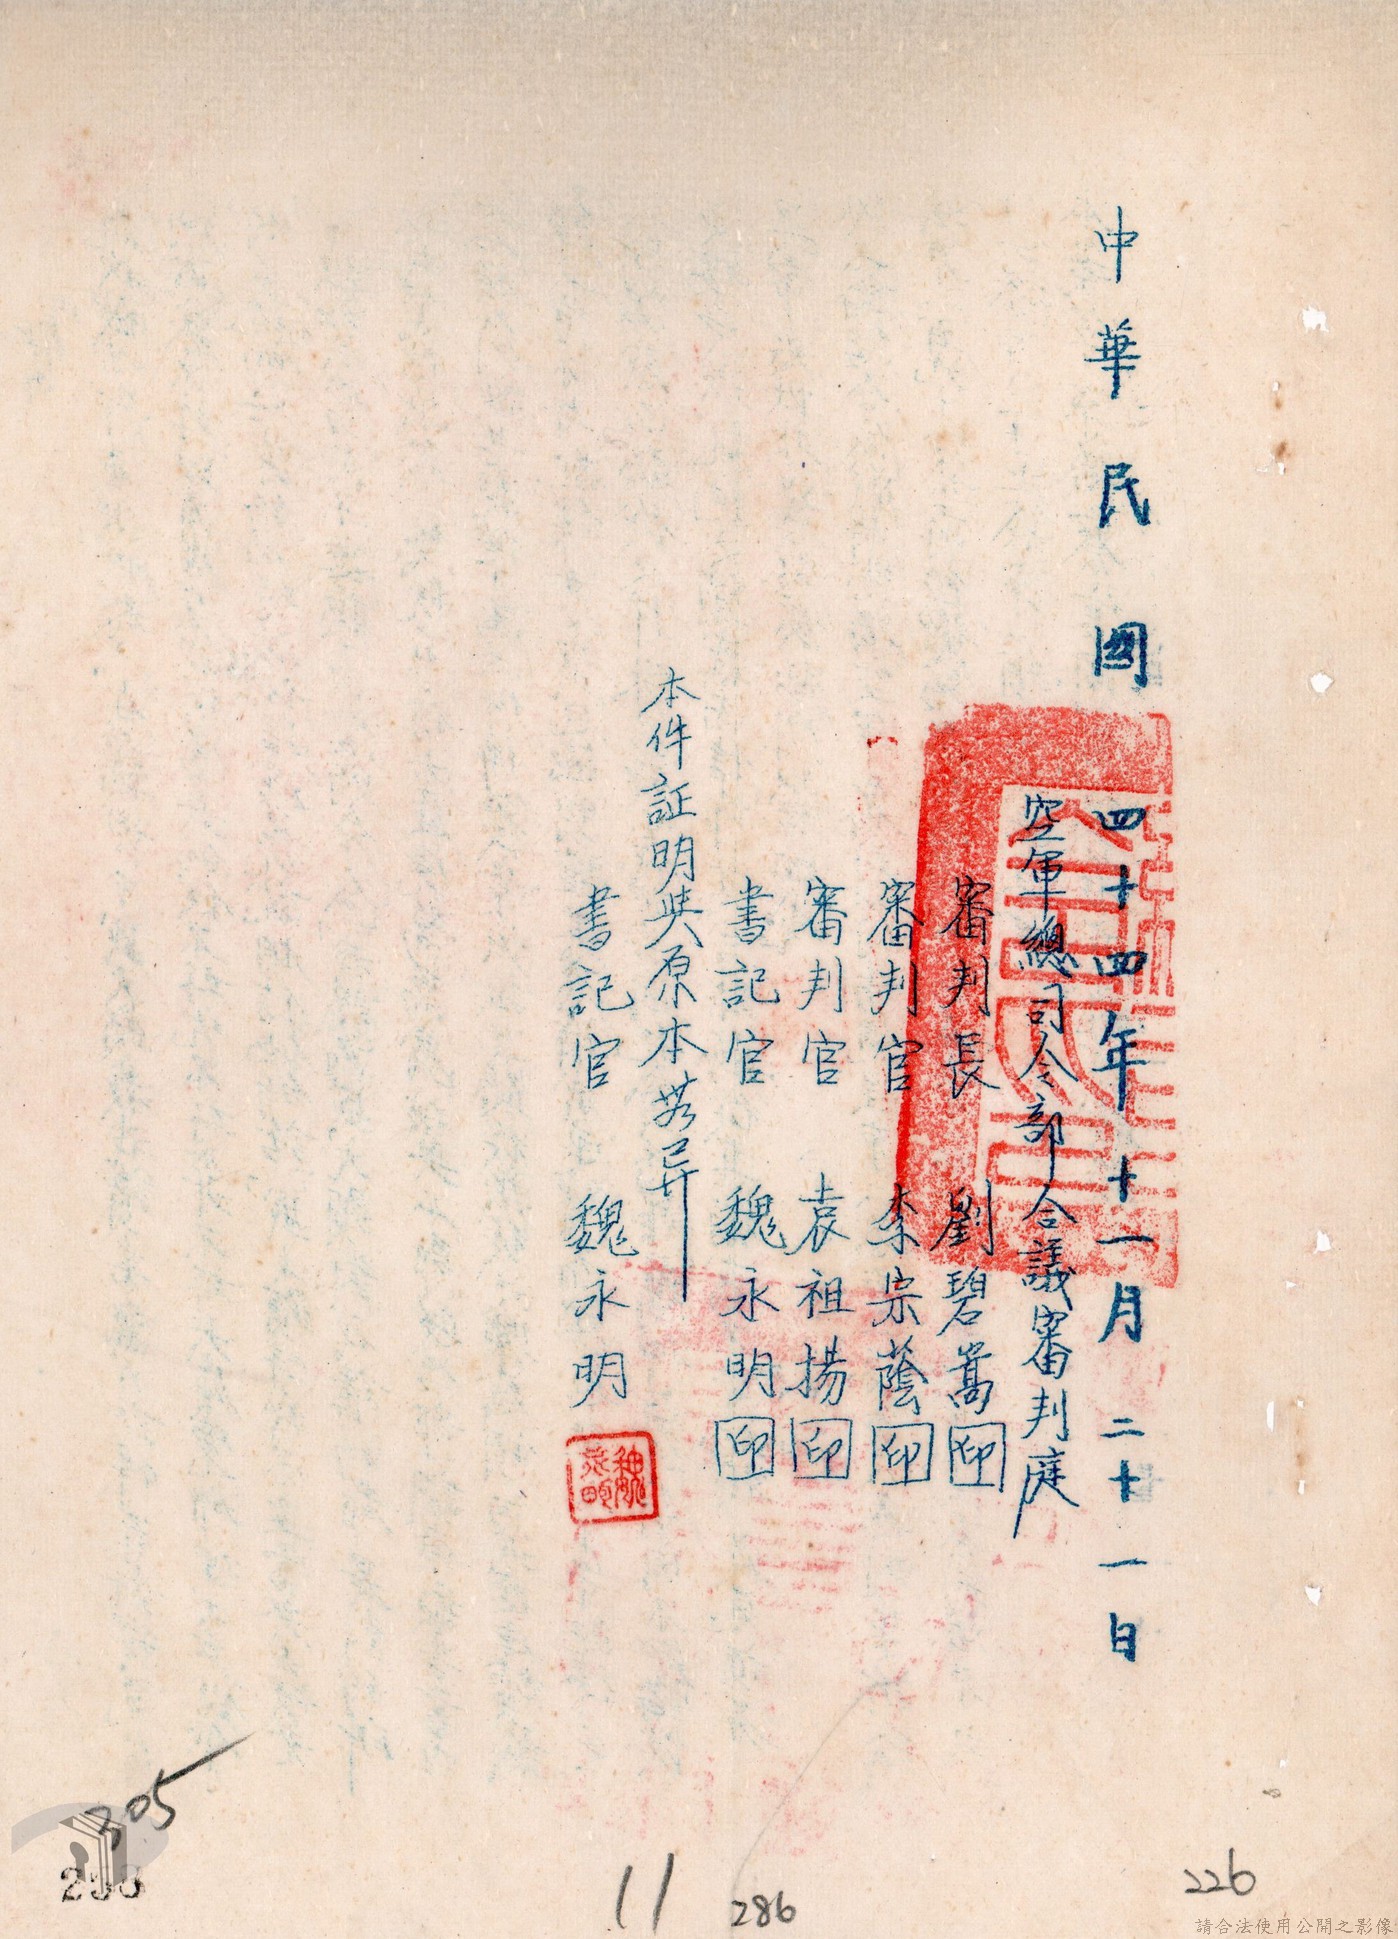 中華民國四十四年十一月二十一日
空軍總司令部合議審判庭
審判長 劉碧嵩 印
審判官 李宗蔭 印
審判官 袁祖揚 印
書記官 魏永明 印
本件証明與原本無異
書記官 魏永明
魏永明
305
293
11
286
226
請合法使用公開之影像